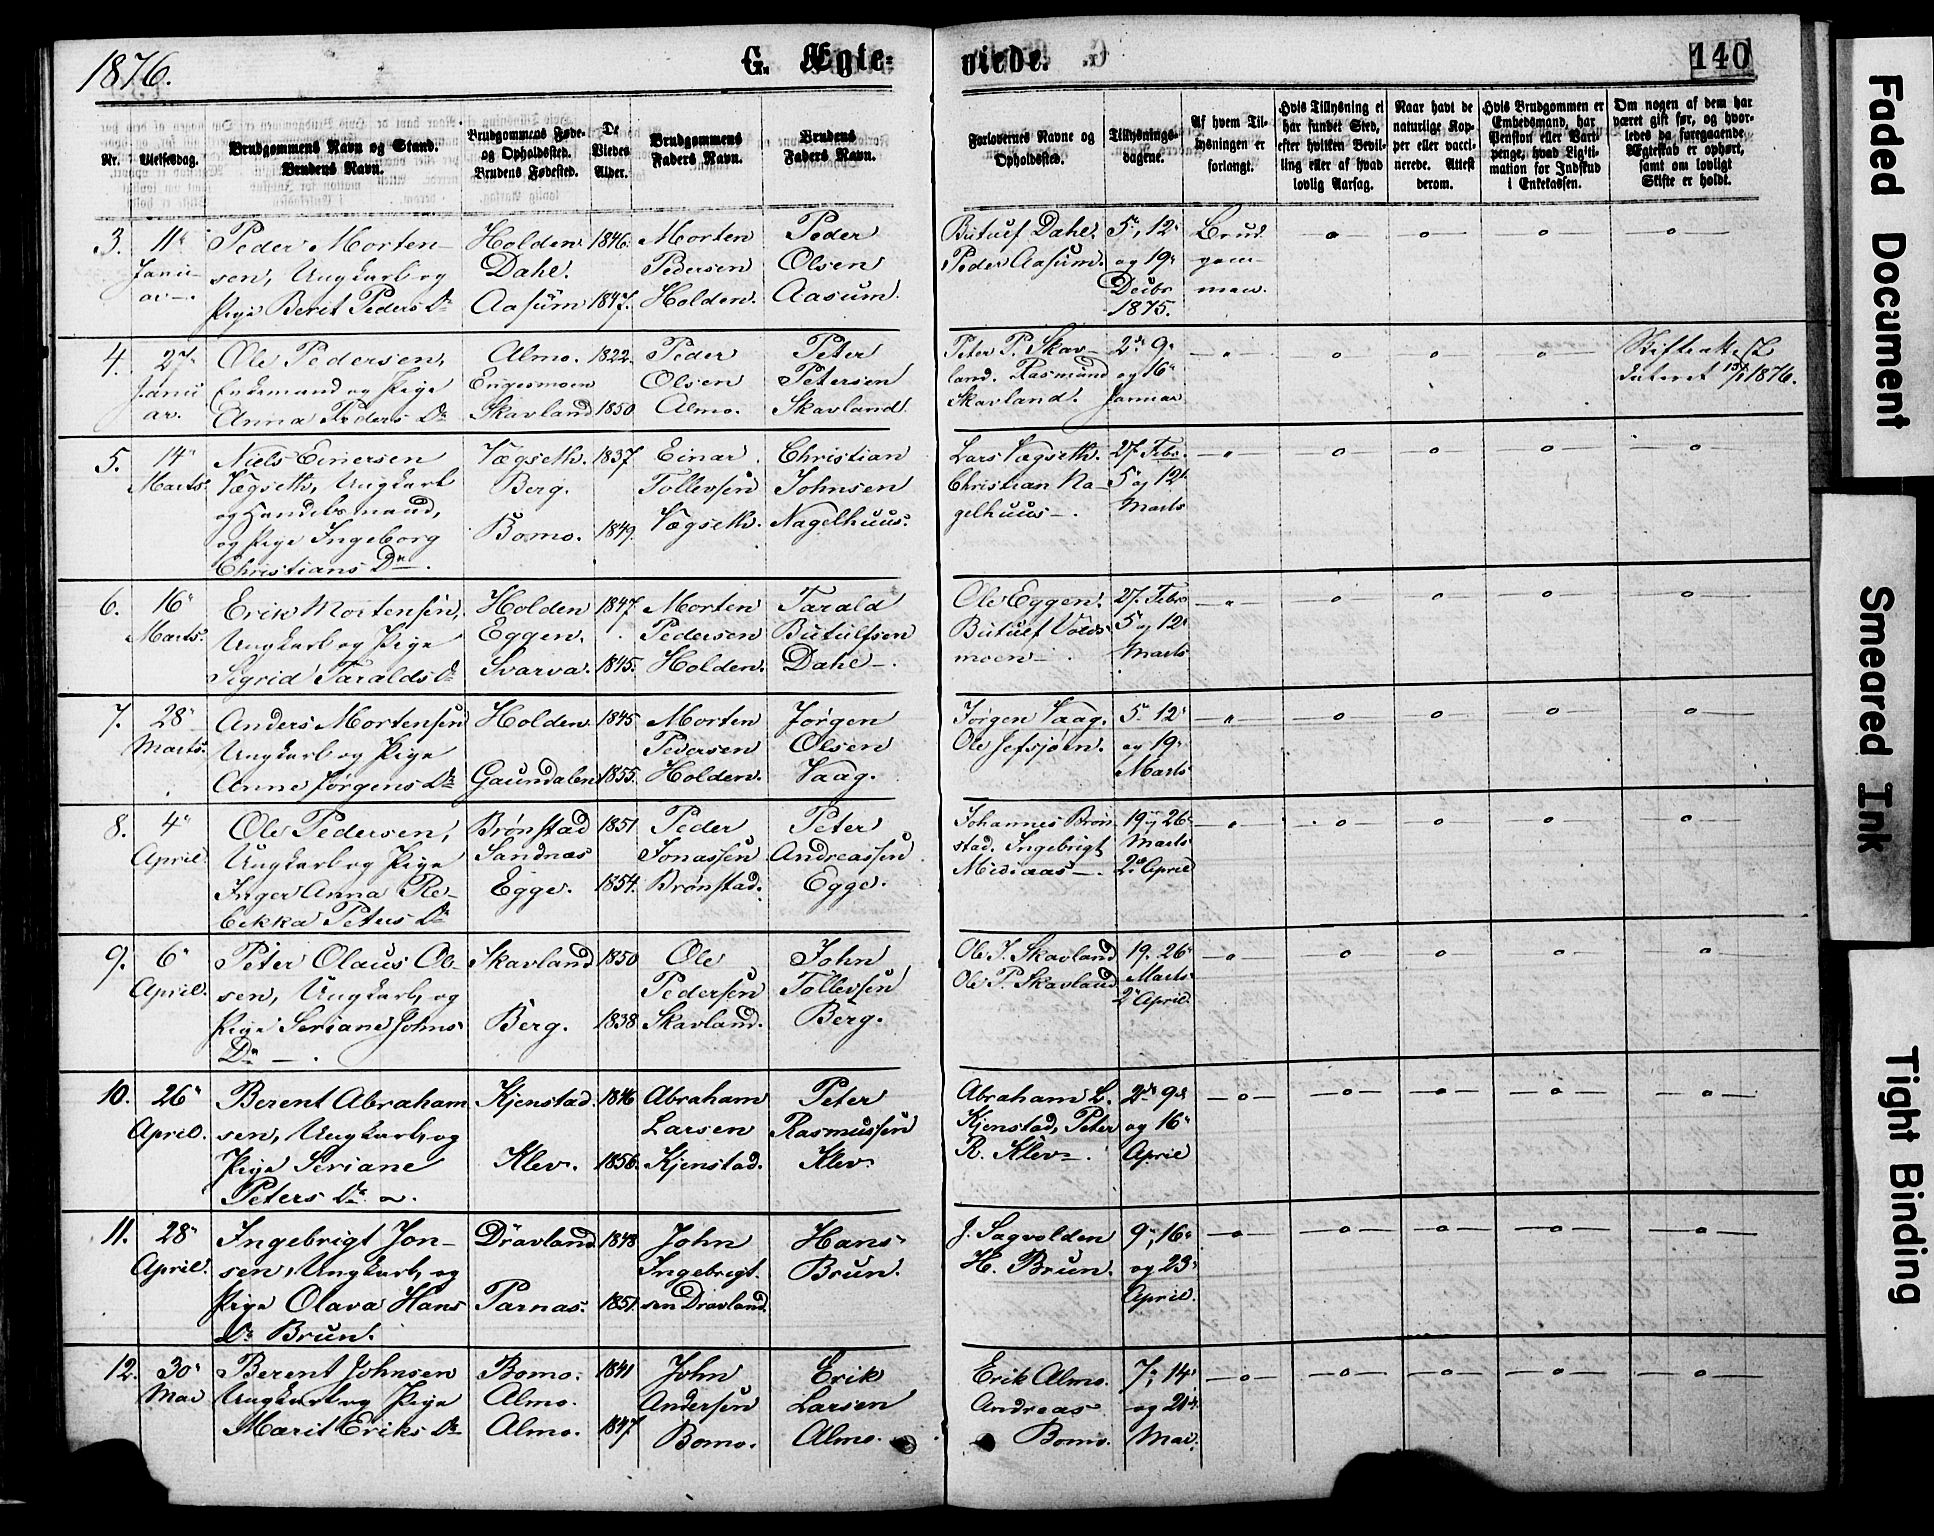 1876.
G. Ægte-
viede.
140
Nr.
Vielsesdag.
Brudgommens Navn og Stand.
Brudens Navn.
Brudgommens Føde-
og Opholdssted.
Brudens Fødested.
De
Viedes
Alder.
Brudgommens
Faders Navn.
Brudens
Faders Navn.
Forlovernes Navne og
Opholdssted.
Tillysnings-
dagene.
Af hvem Til-
lysningen er
forlangt.
Hvis Tillysning ei
har fundet Sted,
efter hvilken Bevil-
ling eller af hvad
lovlig Aarsag.
Naar havt de
naturlige Kop-
per eller vacci-
nerede. Attest
derom.
Hvis Brudgommen er
Embedsmand, har
Pension eller Vart-
penge, hvad Ligiti-
mation for Indskud
i Enkekassen.
Om nogen af dem har
været gift før, og hvor-
ledes da foregaaende
Ægteskab er ophørt,
samt om lovligt
Skifte er holdt.
3.
11"
Janu-
ar.
Peder Morten-
sen, Ungkarl og
Pige Berit Peders Dr
Holden
Dahl.
Aasum
1846.
1847.
Morten
Pedersen
Holden.
Peder
Olsen
Aasum.
Butulf Dahl.
Peder Aasum.
5", 12"
og 19"
Decbr
1875.
Brud
gom-
men.
4.
27"
Janu
ar.
Ole Pedersen,
Enkemand og Pige
Anna Peders Dr
Almo.
Engesmoen
Skavland
1822.
1850
Peder
Olsen
Almo.
Peter
Petersen
Skavland
Peter P. Skav-
land. Rasmund
Skavland.
2de 9"
og 16"
Januar
Skifteattest
dateret 15/1 1876.
5.
14"
Marts.
Niels Einersen
Vægseth, Ungkarl
og Handelsmand,
og Pige Ingeborg
Christians Dr.
Vægseth.
Berg.
Bomo.
1837.
1849.
Einar
Tollevsen
Vægseth.
Christian
Johnsen
Nagelhuus.
Lars Vægseth.
Christian Na-
gelhuus.
27. Febr.
5 og 12"
Marts
6.
16"
Marts.
Erik Mortensen,
Ungkarl og Pige
Sigrid Taralds Dr
Holden
Eggen.
Svarva.
1847.
1845.
Morten
Pedersen
Holden.
Tarald
Butulfsen
Dahl.
Ole Eggen.
Butulf Volds
moen.
27. Febr
5 og 12"
Marts
7.
28"
Marts.
Anders Mortensen
Ungkarl og Pige
Anne Jørgens Dr
Holden
Gaundalen
1845
1855.
Morten
Pedersen
Holden.
Jørgen
Olsen
Vaag.
Jørgen Vaag.
Ole Jefsjøen.
5" 12"
og 19"
Marts
8.
4"
April
Ole Pedersen,
Ungkarl og Pige
Inger Anna Re-
bekka Peters Dr
Brønstad
Sandnæs
Egge.
1851
1854.
Peder
Jonassen
Brønstad.
Peter
Andreassen
Egge.
Johannes Brøn
stad. Ingebrigt
Mediaas.
19 og 26"
Marts
2de April
9.
6"
April.
Peter Olaus Ol-
sen, Ungkarl, og
Pige Seriane Johns
Dr.
Skavland
Berg.
1850
1838
Ole
Pedersen
Skavland.
John
Tollevsen
Berg.
Ole J. Skavland
Ole P. Skavland
19. 26"
Marts
2" April
10.
26"
April.
Berent Abraham
sen, Ungkarl, og
Pige Seriane
Peters Dr.
Kjenstad.
Klev.
1846
1856.
Abraham
Larsen
Kjenstad.
Peter
Rasmussen
Klev.
Abraham L.
Kjenstad, Peter
R. Klev.
2de 9de
og 16"
April
11.
28"
April.
Ingebrigt Jon-
sen, Ungkarl, og
Pige Olava Hans
Dr Brun.
Dravland
Parnas.
1848
1851.
John
Ingebrigt.
sen Dravland.
Hans
Brun.
J. Sagvolden
H. Brun.
9", 16"
og 23"
April.
12.
30"
Mai
Berent Johnsen
Ungkarl og Pige
Marit Eriks Dr
Bomo.
Almo.
Almo.
1841
1847.
John
Andersen
Bomo.
Erik
Larsen
Almo.
Erik Almo.
Andreas
Bomo.
7", 14"
og 21"
Mai.
Faded Document
Smeared Ink
Tight Binding